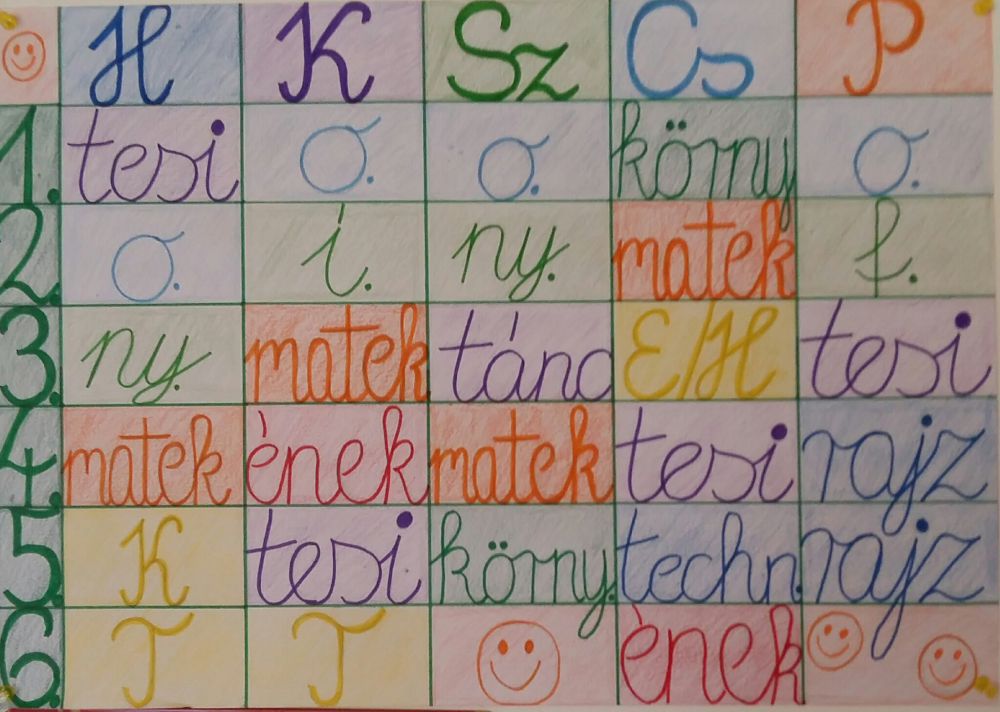 H K Sz Cs P
1. tesi o. o. körny o.
2. o. í. ny. matek f.
3. ny. matek tánc E/H tesi
4. matek ének matek tesi rajz
5. K tesi körny. techn. rajz
6. T T ének